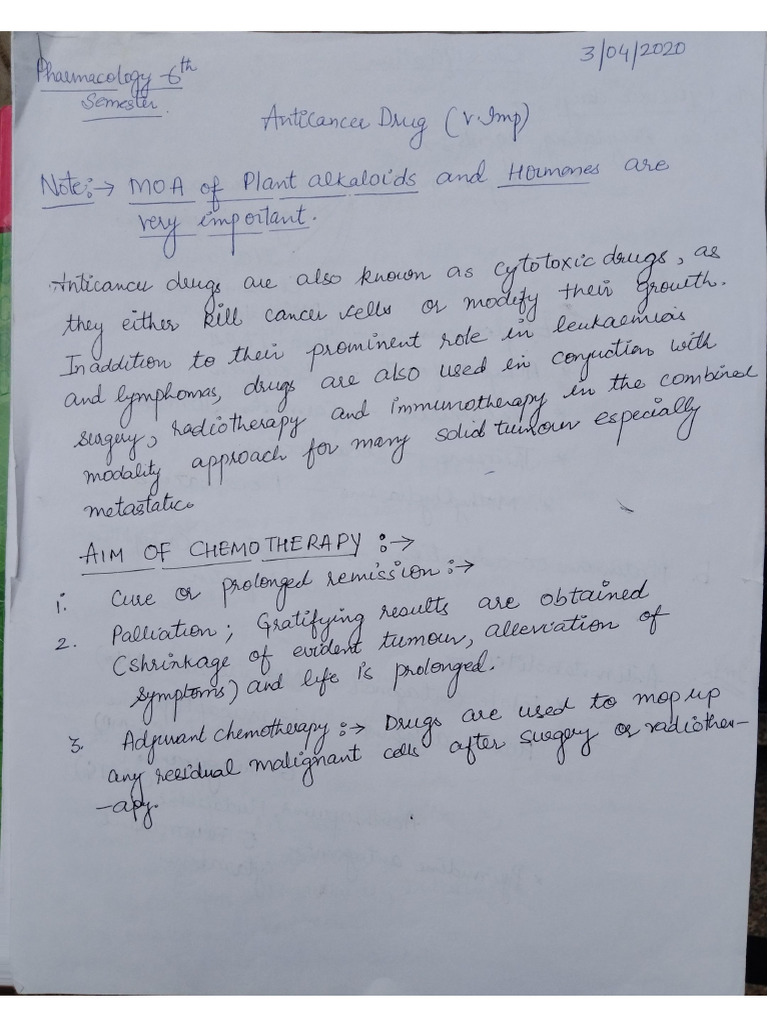 3/04/2020
Pharmacology-6th
Semester.
Anticancer Drug (V.Imp)
Note:→ MOA of Plant alkaloids and Hormones are
very important.
Anticancer drugs are also known as cytotoxic drugs, as
they either kill cancer cells or modify their growth.
In addition to their prominent role in leukaemias
and lymphomas, drugs are also used in conjuction with
surgery, radiotherapy and immunotherapy in the combined
modality approach for many solid tumour especially
metastatic.
AIM OF CHEMOTHERAPY :→
1. Cure or prolonged remission :→
2. Palliation; Gratifying results are obtained
(shrinkage of evident tumour, alleviation of
symptoms) and life is prolonged.
3. Adjuvant chemotherapy :→ Drugs are used to mop up
any residual malignant cells after surgery or radiother-
-apy.